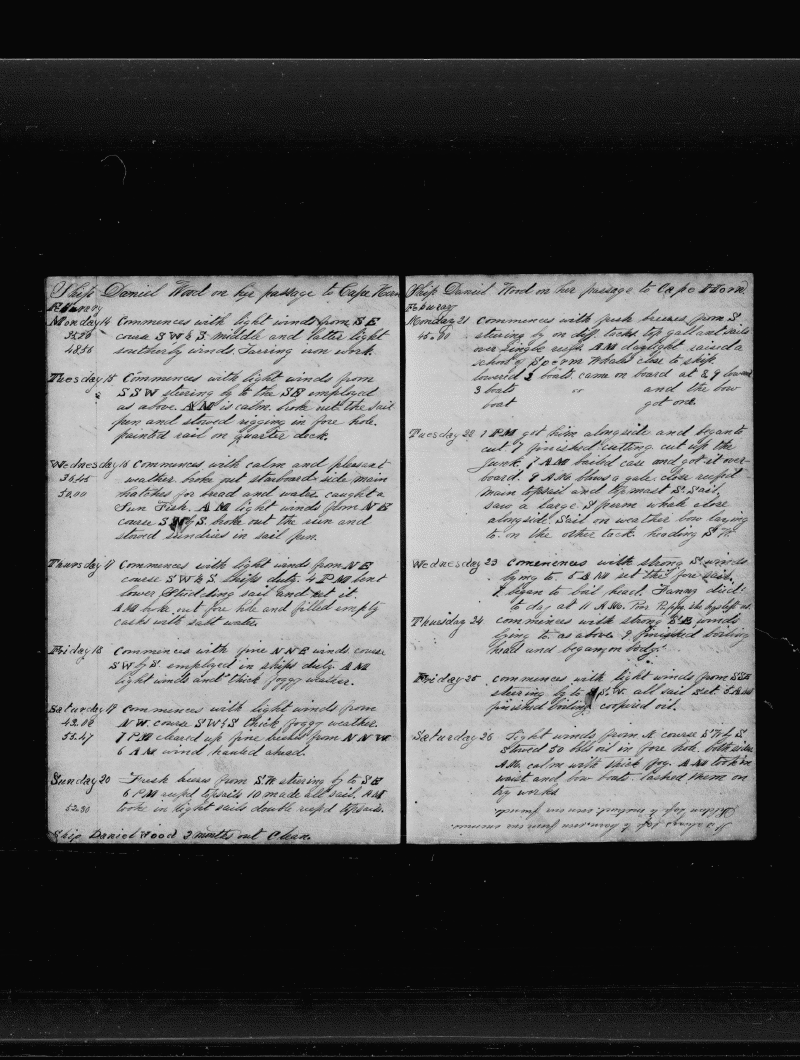 Ship Daniel Wood on her passage to Cape Horn
February
Monday 14 Commences with light winds from SE
35.20 course SW&S. Middle and latter light
48.56 southerly winds. Tarring iron work.
Tuesday 15 Commences with light winds from
SSW stering by to the SE employed
as above. AM is calm. broke out the sail
pun and stowed rigging in fore hole.
painted rail on quarter deck.
Wednesday 16 Commences with calm and pleasent
weather. broke out starboard side main
50.00 hatches for bread and water. caught a
Sun Fish. AM light winds from NE
course SW&S. broke out the run and
stowd sundries in sail pun.
Thursday 17 Commences with light winds from NE
course SW&S ships duty. 4 PM bent
lower studding sail and set it.
AM broke out fore hole and filled empty
casks with salt water.
Friday 18 Commences with fine NNE winds course
SW&S. employed in ships duty. AM
light winds and thick foggy weather.
Saturday 19 Commences with light winds from
NW. course SW&S thick foggy weather.
53.47 7 PM cleared up fine breeze from NNW
6 AM wind hauled ahead.
Sunday 20 Fresh breeses from SW stering by to SE
6 PM reefd topsails 10 made all sail. AM
52.30 took in light sails double reefd topsails.
Ship Daniel Wood 3 months out Clean.
Ship Daniel Wood on her passage to Cape Horn
Febuary
Monday 21 Commences with fresh breeses from S
stering by on diff tacks. top gallant sails
over single reefs. AM daylight raised a
school of Sperm Whales close to ship.
lowered 3 boats. came on board at 8, 9 lowered
3 boats and the bow
boat got one.
Tuesday 22 1 PM got him alongside and began to
cut. 7 finished cutting. cut up the
Junk, 1 AM bailed case and got it over-
board. 9 AM blows a gale. close reefd
main topsail and topmast St. Sail,
saw a large Sperm whale close
alongside. Sail on weather bow laying
to. on the other tack. heading SW.
Wednesday 23 Comencnces with strong S winds
lying to. 5 AM set the fore sail.
9 began to boil head. Fanny died
to day at 11 A.M. Poor Puppy she has left us.
Thursday 24 commences with strong SE winds
lying to as above. 9 finished boiling
head and began on body.
Friday 25 commences with light winds from SSE
stering by to SW. all sail set. 5 AM
finished boiling coopered oil.
Saturday 26 Light winds from N course SW&S
Stowed 50 bbs oil in fore hole.
AM. calm with thick fog. AM took in
waist and bow boats. lashed them on
try works
Seldom safe to instruct even our friends.
Is always safe to learn, even from our enemies.